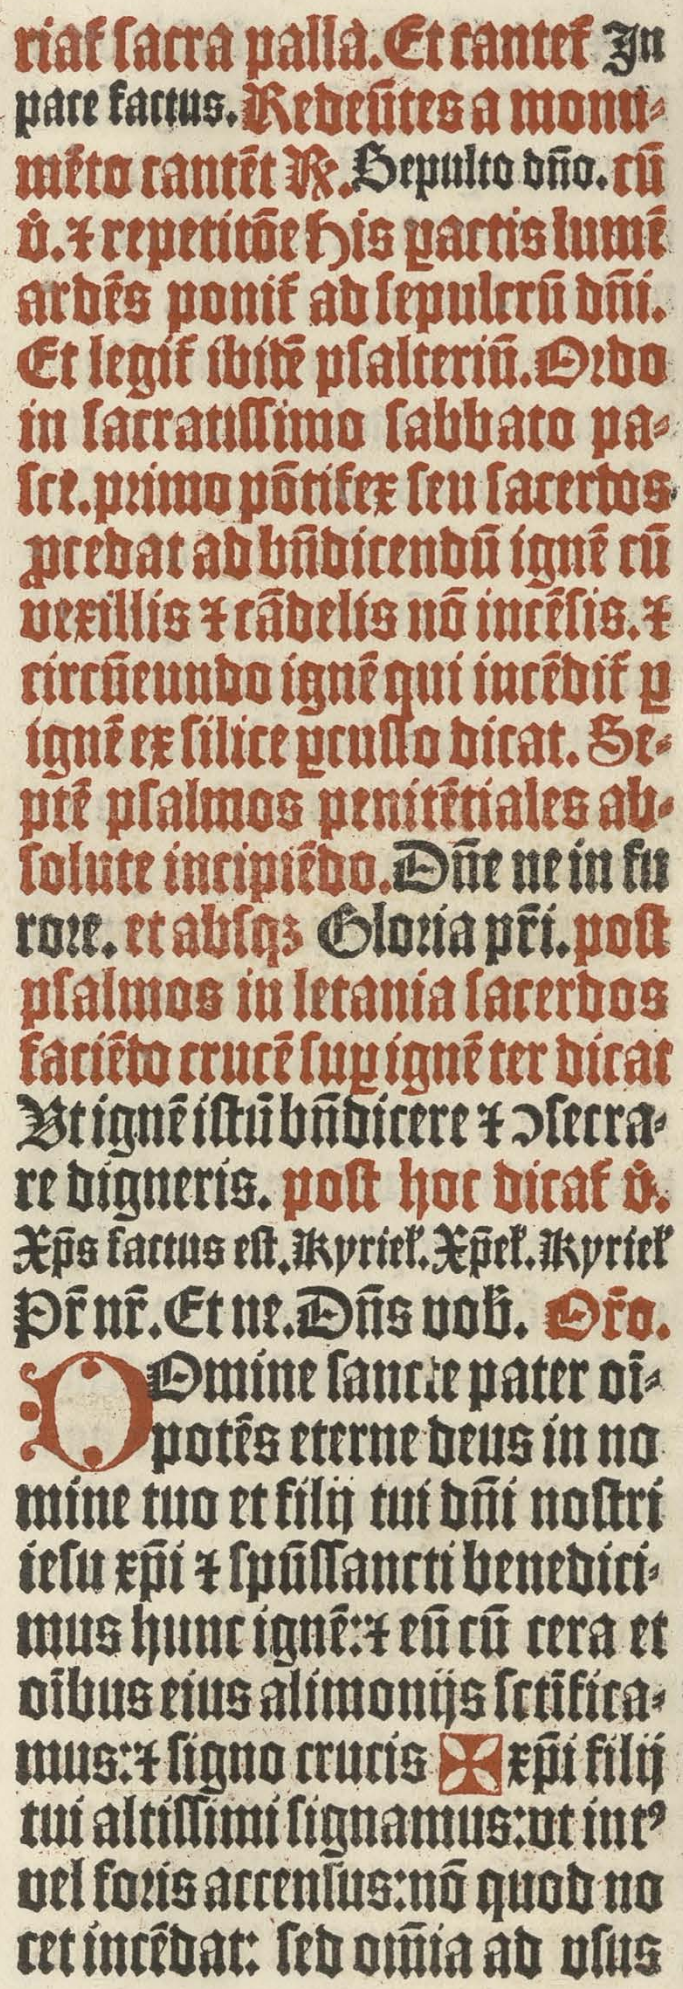 riaꝛ ſacra palla. Et canteꝛ In
pace factus. Redeūtes a monu⸗
mēto cantēt ℞. Sepulto dño. cū
v̓. ⁊ repetitōe His ꝑactis lumē
ardēs poniꝛ ad ſepulcrū dñi.
Et legiꝛ ibidē pſalteriū. Ordo
in ſacratiſſimo ſabbato pa⸗
ſce. primo pōtifex ſeu ſacerdos
ꝓcedat ad bñdicendū ignē cū
vexillis ⁊ cādelis nō incēſis. ⁊
circūeundo ignē qui incēdiꝛ ꝑ
ignē ex ſilice ꝑcuſſo dicat. Se⸗
ptē pſalmos penitētiales ab⸗
ſolute incipiēdo. Dñe ne in fu
rore. et abſqꝫ Gloria pr̄i. poſt
pſalmos in letania ſacerdos
faciēdo crucē ſuꝑ ignē ter dicat
Ut ignē iſtū bñdicere ⁊ ↄſecra⸗
re digneris. poſt hoc dicaꝛ v̓.
Xp̄s factus eſt. Kyriel̓. Xp̄el̓. Kyriel̓
Pr̄ nr̄. Et ne. Dñs vob̓. Or̄o.
DOmine ſancte pater oī⸗
potēs eterne deus in no
mine tuo et filij tui dñi noſtri
ieſu xp̄i ⁊ ſpūſſancti benedici⸗
mus hunc ignē: ⁊ eū cū cera et
oībus eius alimonijs ſctīfica⸗
mus: ⁊ ſigno crucis ✠ xp̄i filij
tui altiſſimi ſignamus: vt intꝰ
vel foris accenſus: nō quod no
cet incēdat: ſed om̄ia ad vſus